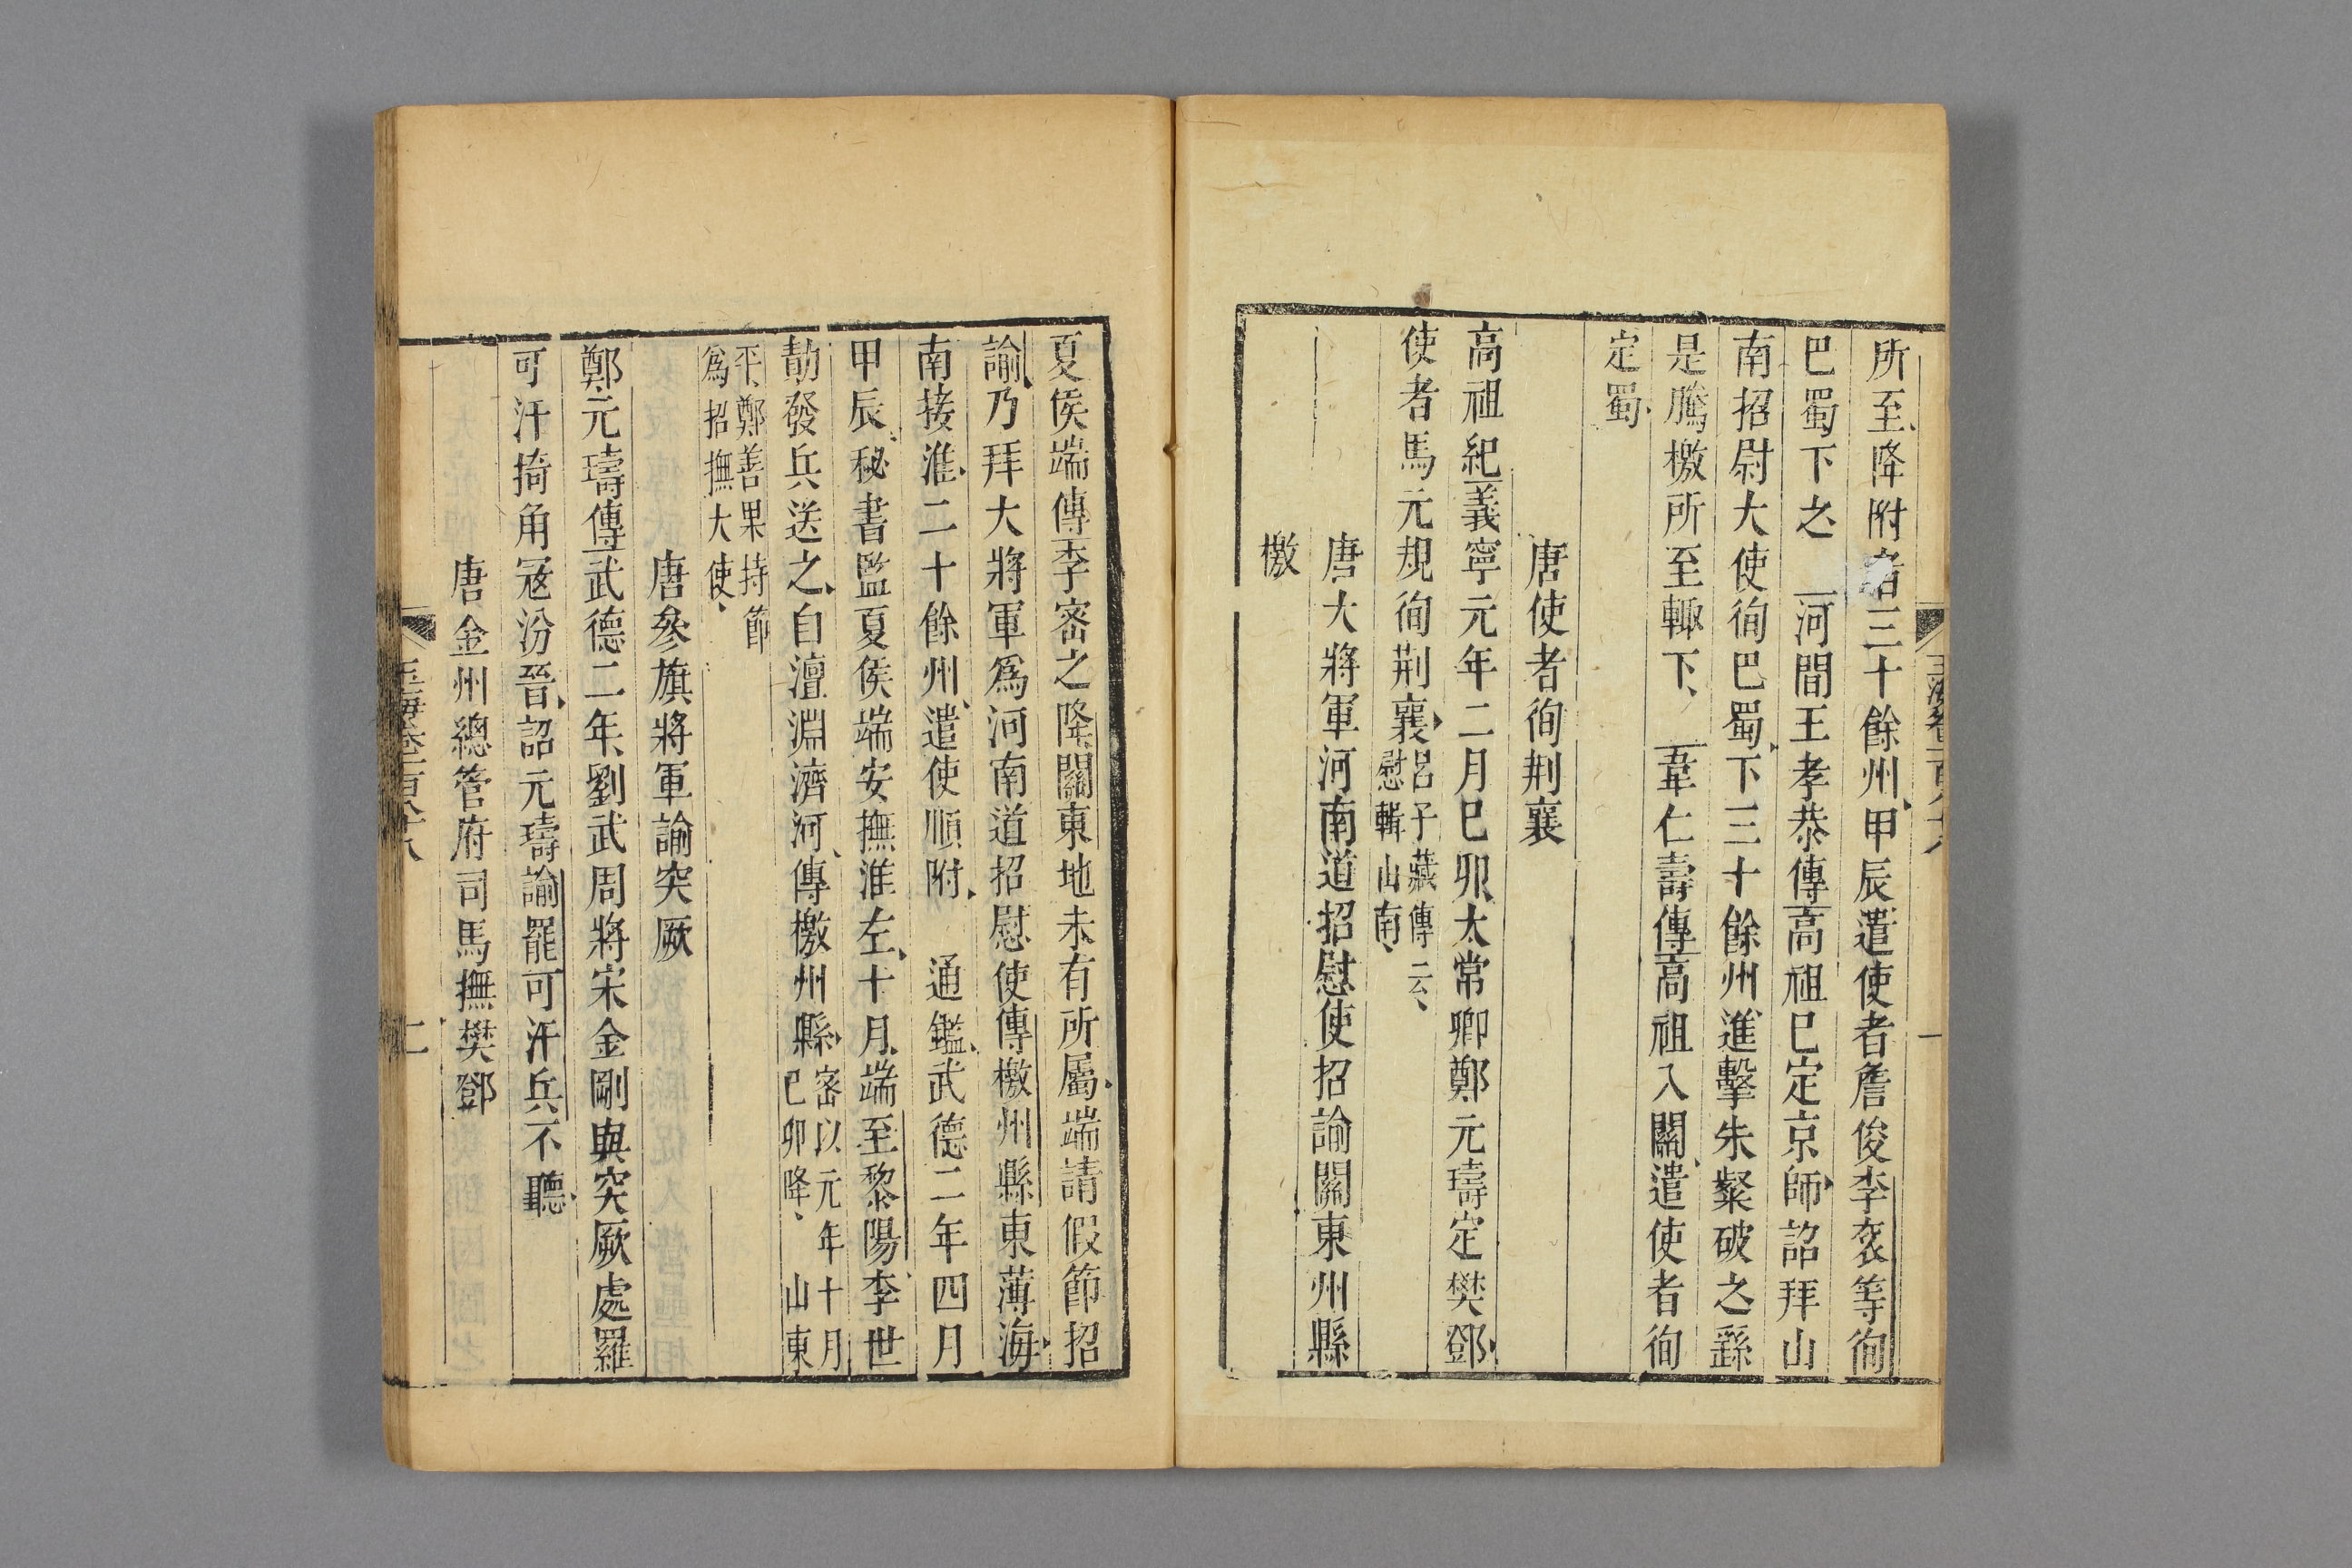 所至降附者三十餘州甲辰遣使者詹俊李袞等徇
巴蜀下之 河間王孝恭傳高祖已定京師詔拜山
南招尉大使徇巴蜀下三十餘州進擊朱粲破之繇
是騰檄所至輒下 韋仁壽傳高祖入關遣使者徇
定蜀
唐使者徇荆襄
高祖紀義寧元年二月巳卯太常卿鄭元璹定樊鄧
使者馬元規徇荆襄呂子藏傳云
慰輯山南
唐大將軍河南道招慰使招諭關東州縣
檄
夏侯端傳李密之降關東地未有所屬端請假節招
諭乃拜大將軍爲河南道招慰使傳檄州縣東薄海
南接淮二十餘州遣使順附 通鑑武德二年四月
甲辰秘書監夏侯端安撫淮左十月端至黎陽李世
勣發兵送之自澶淵濟河傳檄州縣密以元年十月
巳卯降 山東
平鄭善果持節
爲招撫大使
唐參旗將軍諭突厥
鄭元璹傳武德二年劉武周將宋金剛與突厥處羅
可汗掎角寇汾晉詔元璹諭罷可汗兵不聽
唐金州總管府司馬撫樊鄧